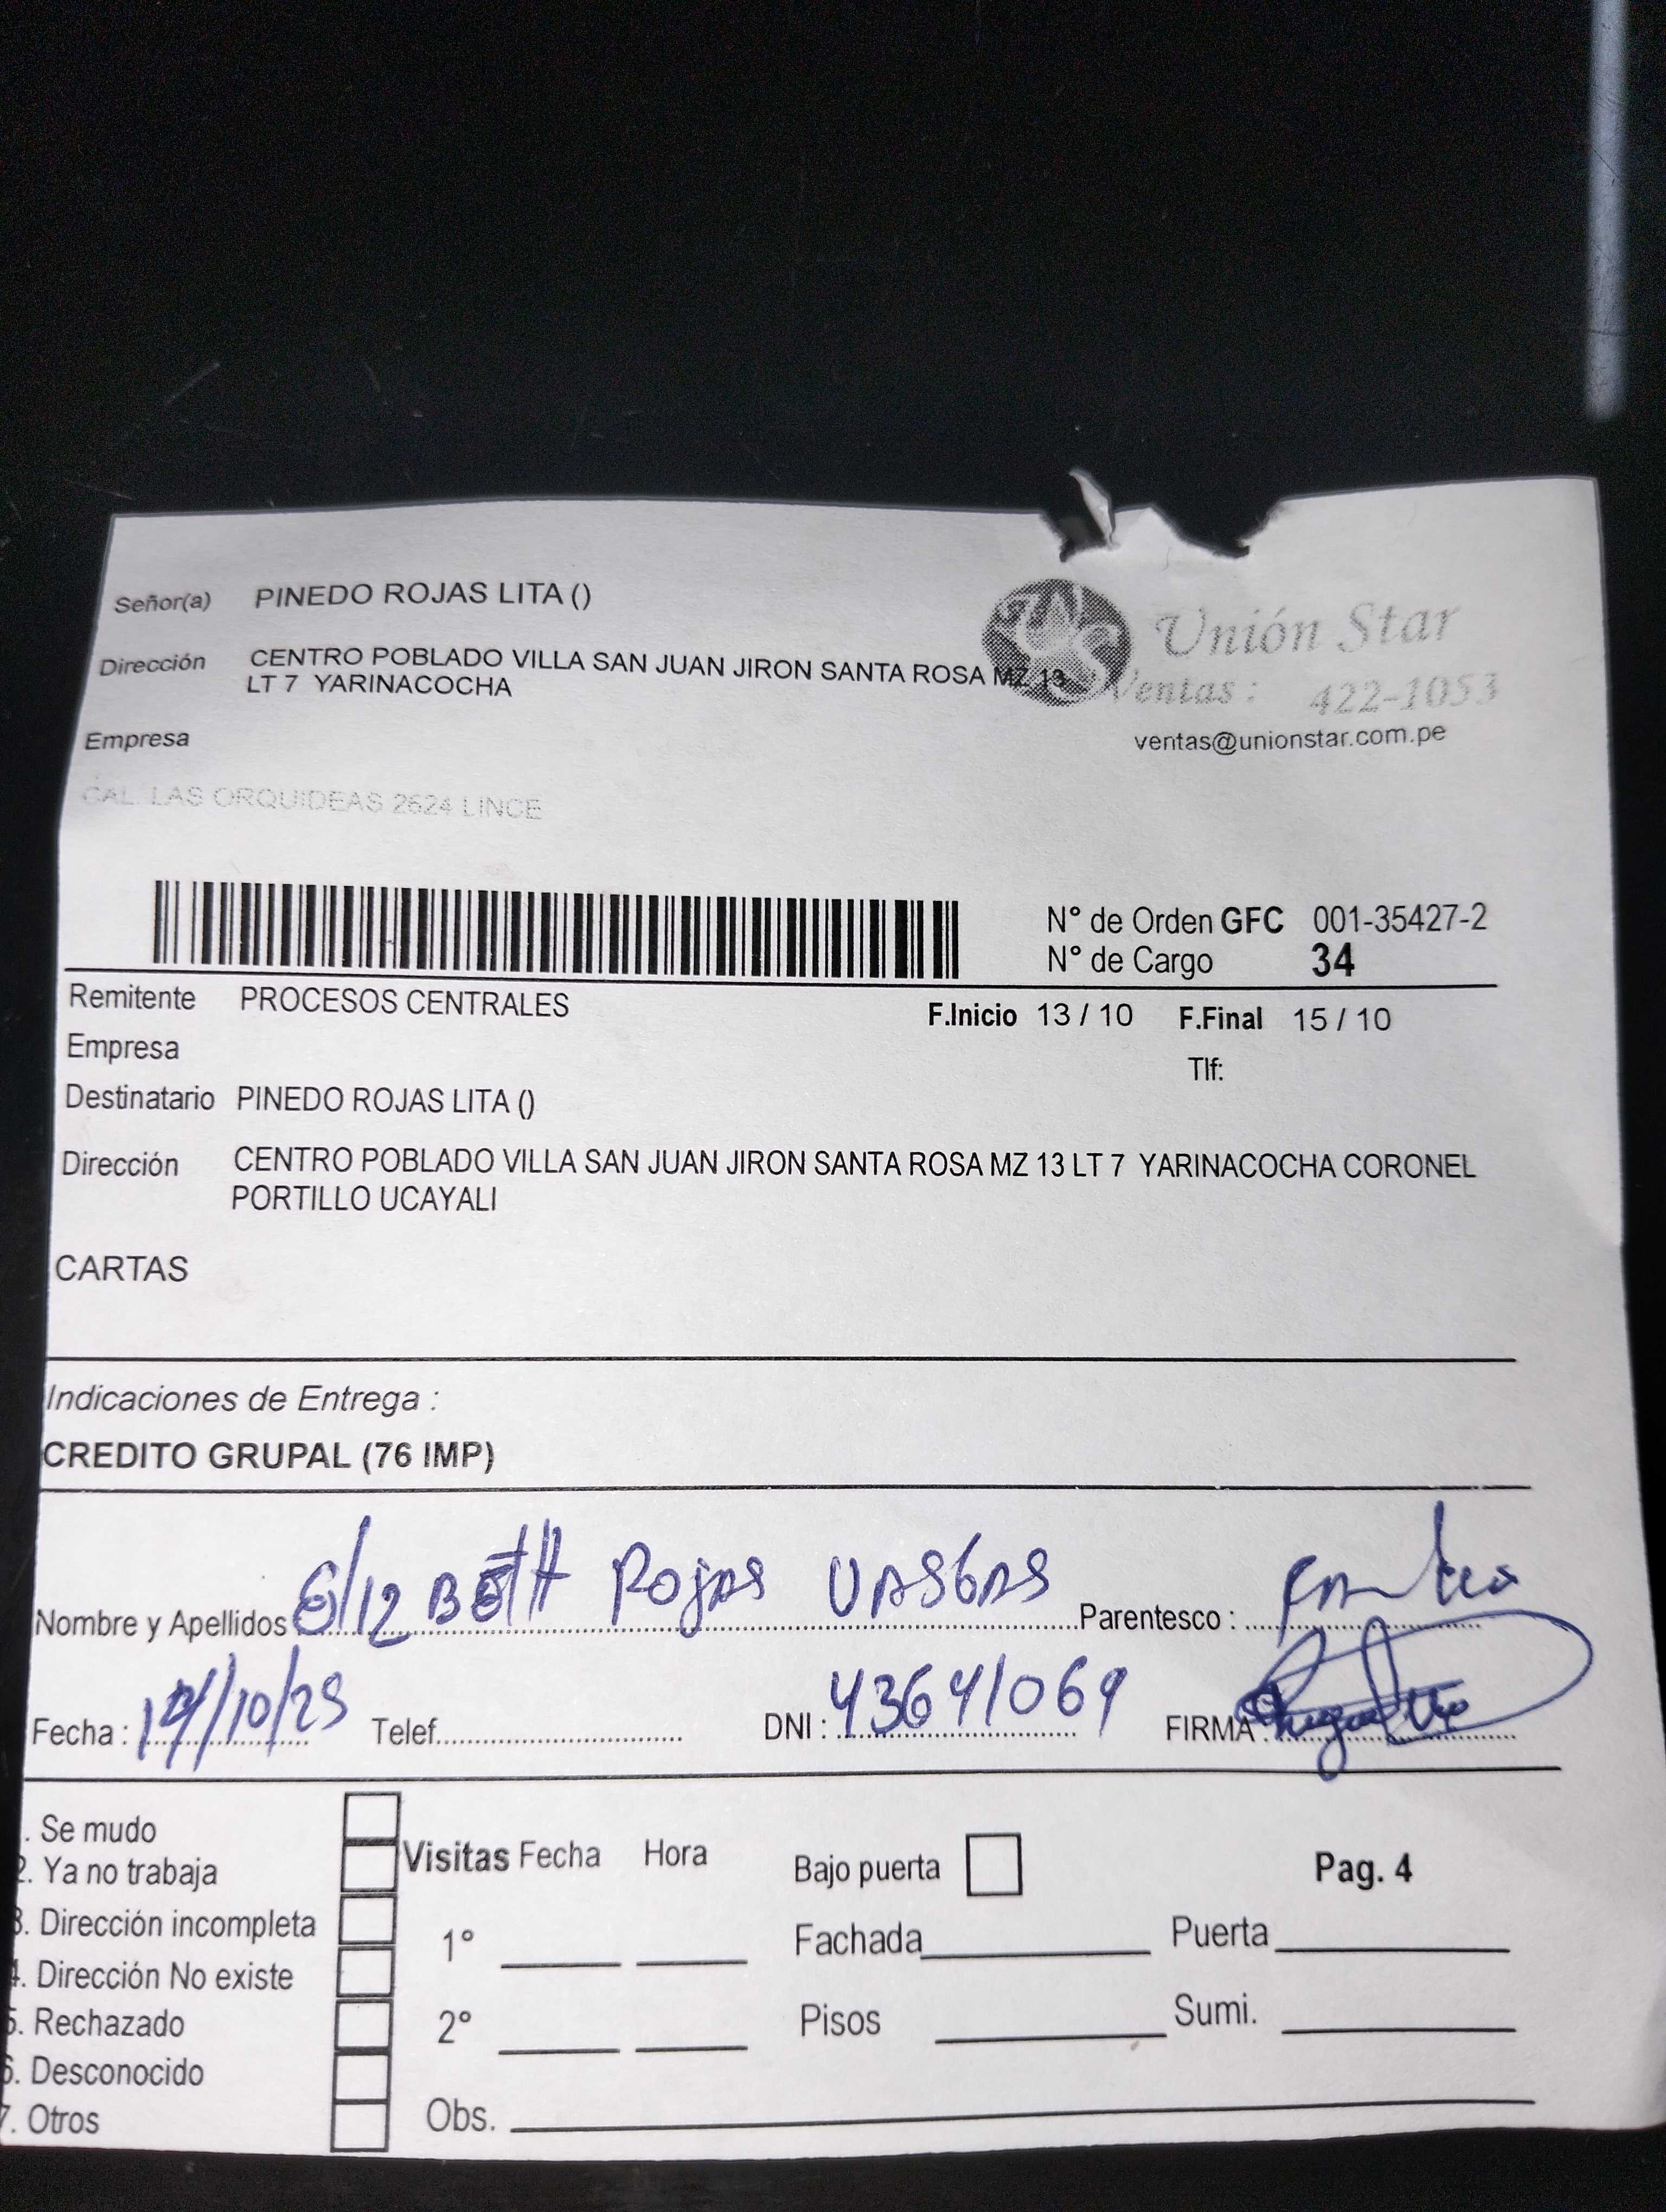 Señor(a) PINEDO ROJAS LITA ()
Dirección CENTRO POBLADO VILLA SAN JUAN JIRON SANTA ROSA MZ 13
LT 7 YARINACOCHA
Unión Star
Ventas : 422-1053
ventas@unionstar.com.pe
Empresa
CAL. LAS ORQUIDEAS 2624 LINCE
N° de Orden GFC 001-35427-2
N° de Cargo 34
Remitente PROCESOS CENTRALES F.Inicio 13 / 10 F.Final 15 / 10
Empresa Tlf:
Destinatario PINEDO ROJAS LITA ()
Dirección CENTRO POBLADO VILLA SAN JUAN JIRON SANTA ROSA MZ 13 LT 7 YARINACOCHA CORONEL
PORTILLO UCAYALI
CARTAS
Indicaciones de Entrega :
CREDITO GRUPAL (76 IMP)
Nombre y Apellidos ElizBETH Rojas VASGAS Parentesco :
Fecha : 14/10/25 Telef. DNI : 43641069 FIRMA :
. Se mudo
2. Ya no trabaja Visitas Fecha Hora Bajo puerta Pag. 4
3. Dirección incompleta 1° Fachada Puerta
4. Dirección No existe
5. Rechazado 2° Pisos Sumi.
6. Desconocido
7. Otros Obs.